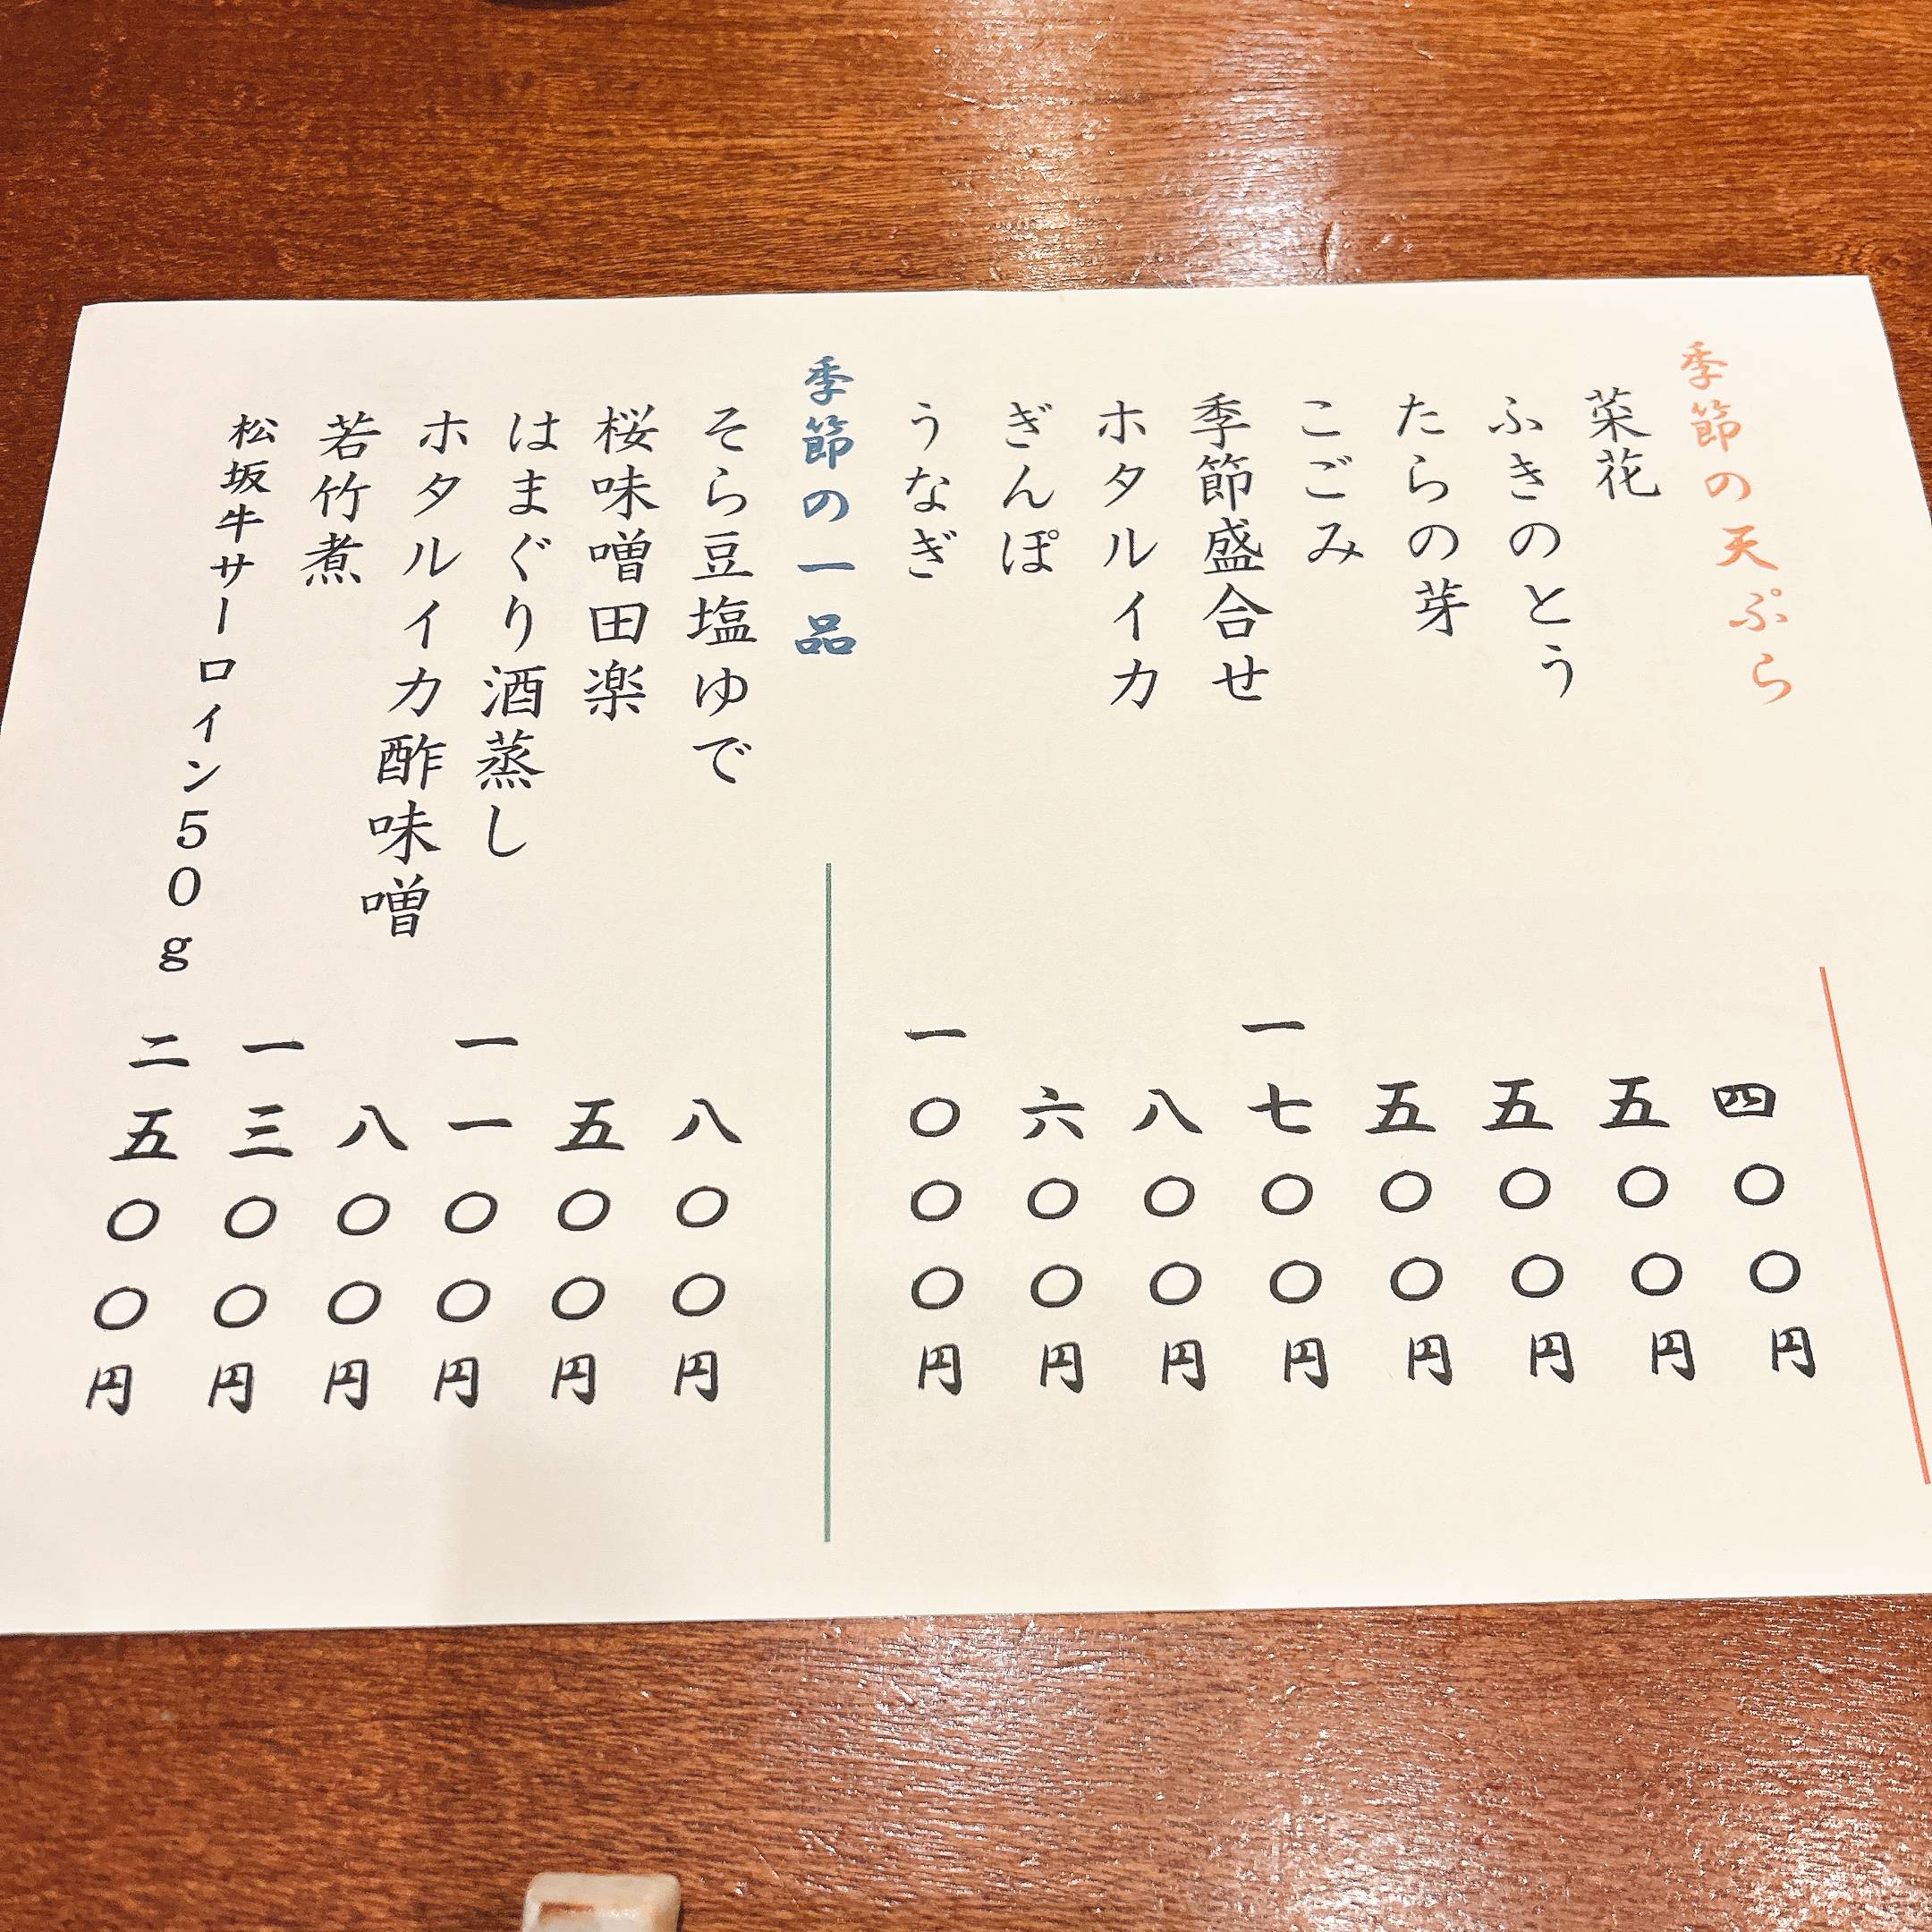 季節の天ぷら
菜花 四〇〇円
ふきのとう 五〇〇円
たらの芽 五〇〇円
こごみ 五〇〇円
季節盛合せ 一七〇〇円
ホタルイカ 八〇〇円
ぎんぽ 六〇〇円
うなぎ 一〇〇〇円
季節の一品
そら豆塩ゆで 八〇〇円
桜味噌田楽 五〇〇円
はまぐり酒蒸し 一一〇〇円
ホタルイカ酢味噌 八〇〇円
若竹煮 一三〇〇円
松坂牛サーロイン50g 二五〇〇円